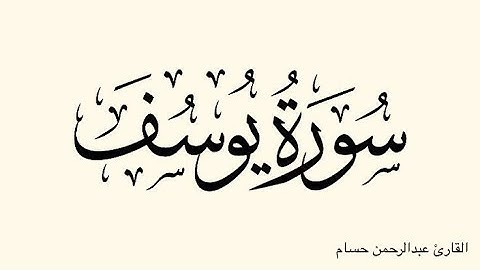 سُورَةُ يُوسُفَ
القارئ عبدالرحمن حسام